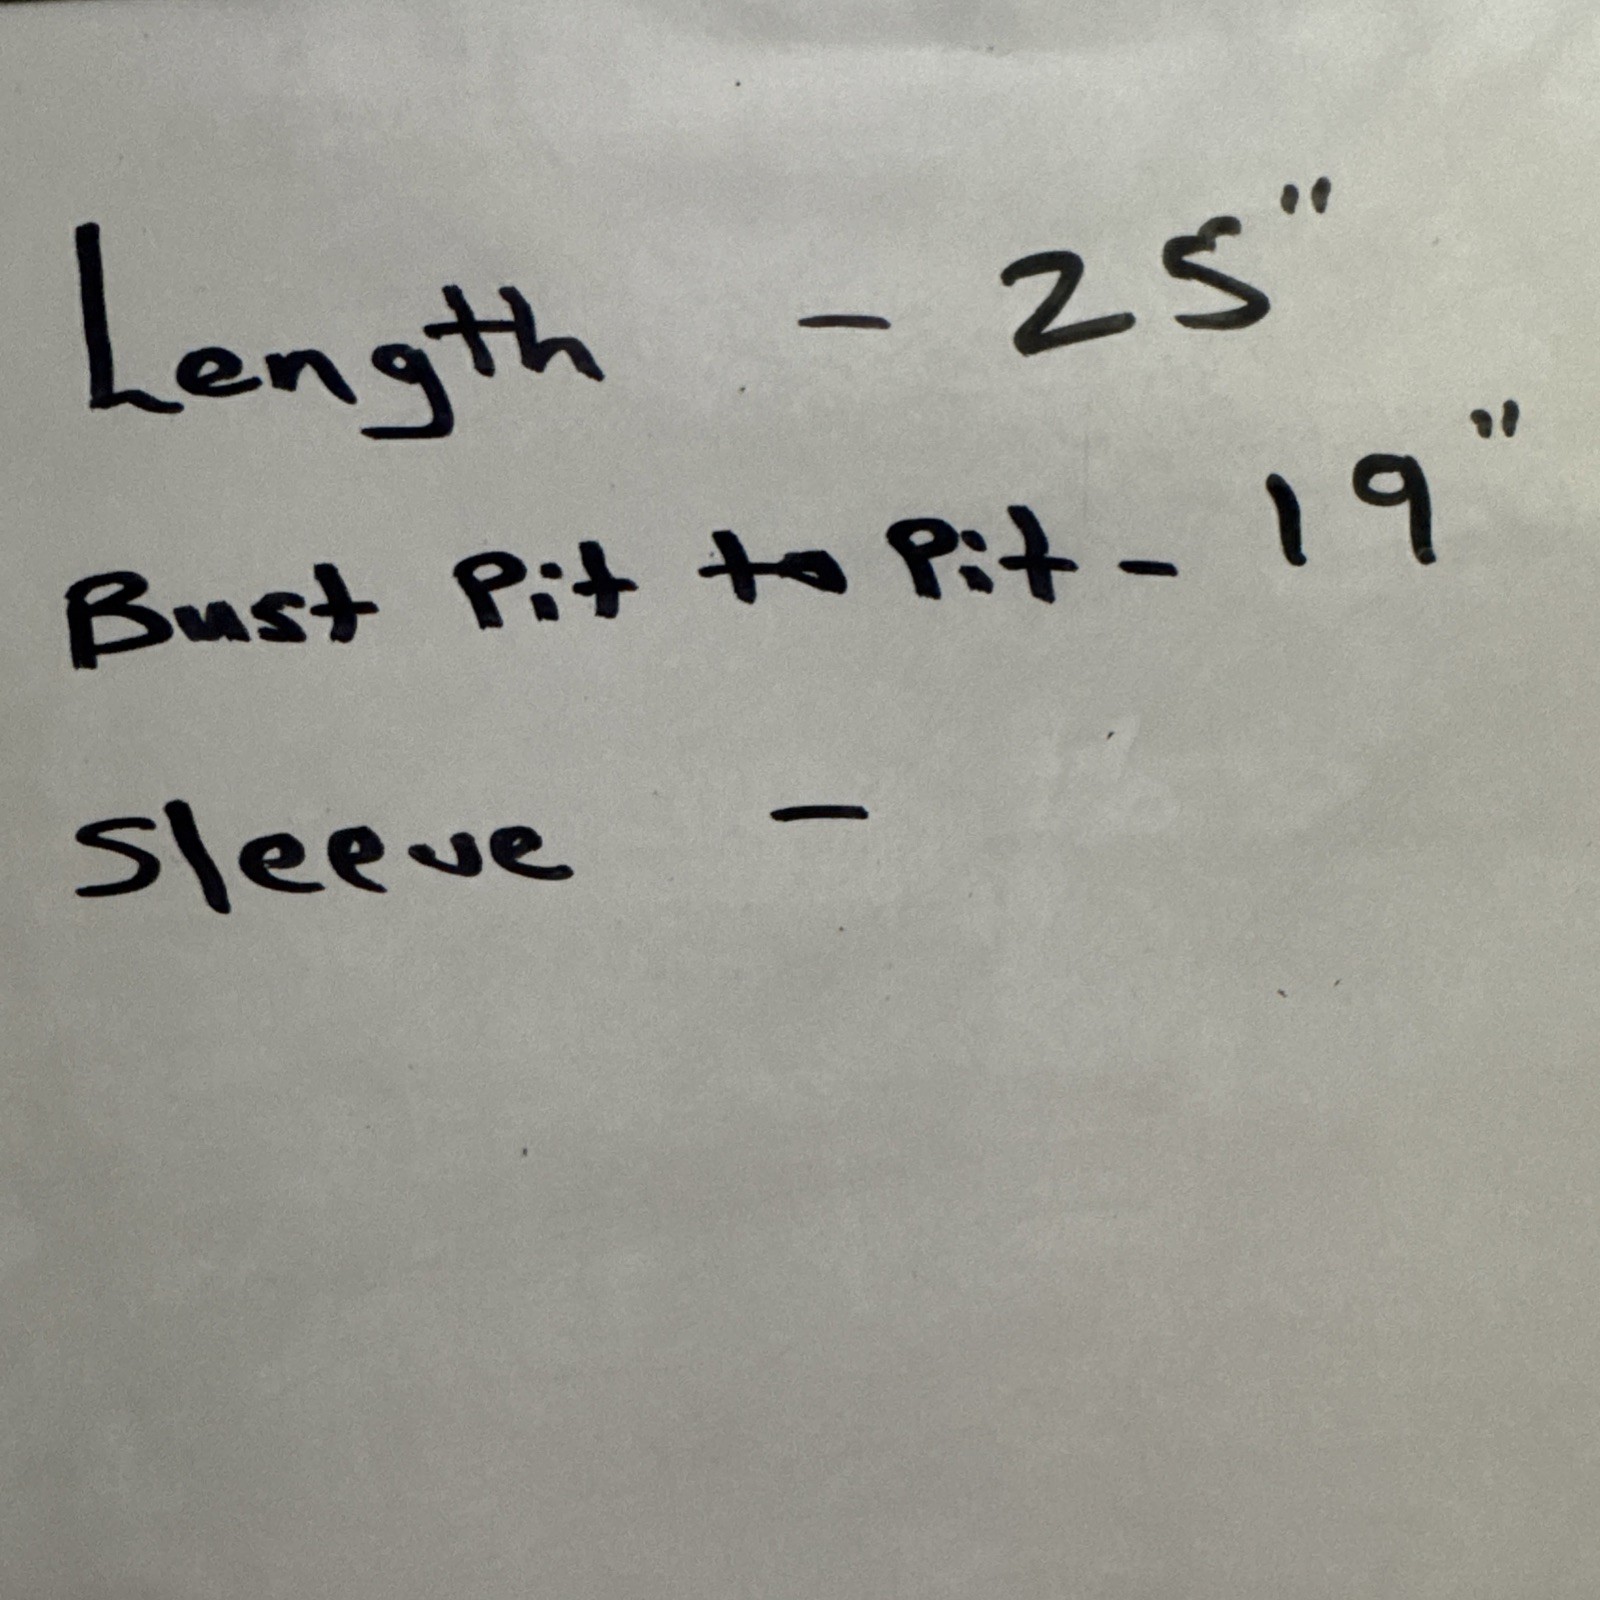 Length - 25"
Bust Pit to Pit - 19"
Sleeve -